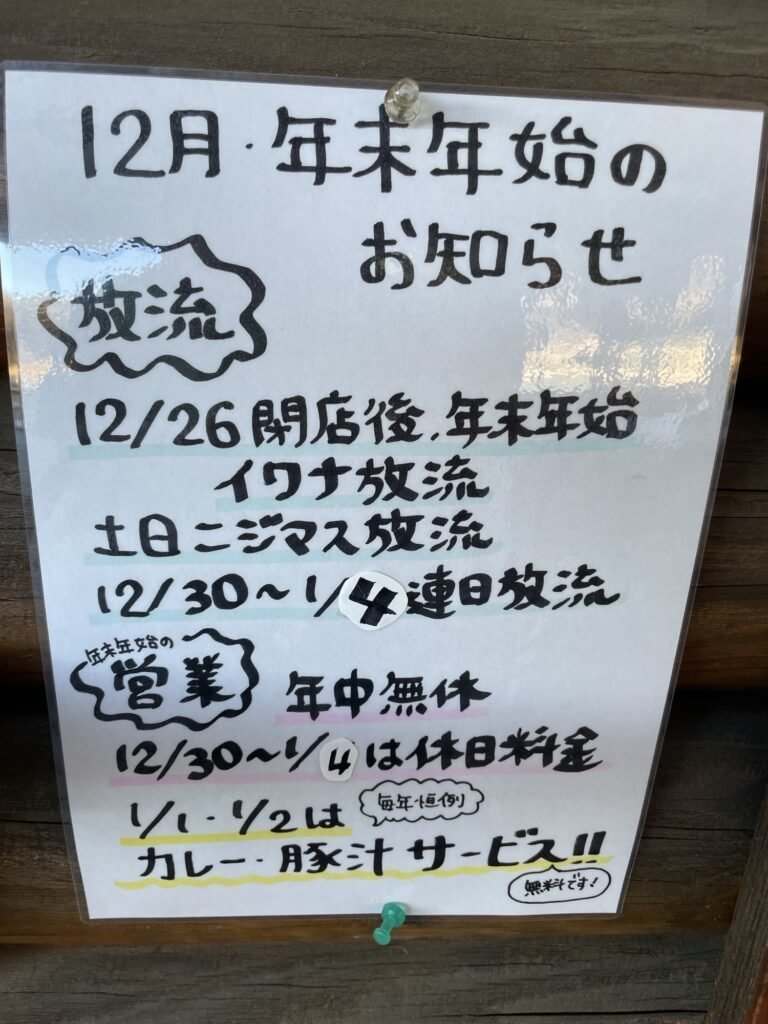 12月・年末年始の
お知らせ
放流
12/26閉店後、年末年始
イワナ放流
土日ニジマス放流
12/30〜1/4連日放流
年末年始の
営業
年中無休
12/30〜1/4は休日料金
1/1・1/2は
毎年恒例
カレー・豚汁サービス!!
無料です!